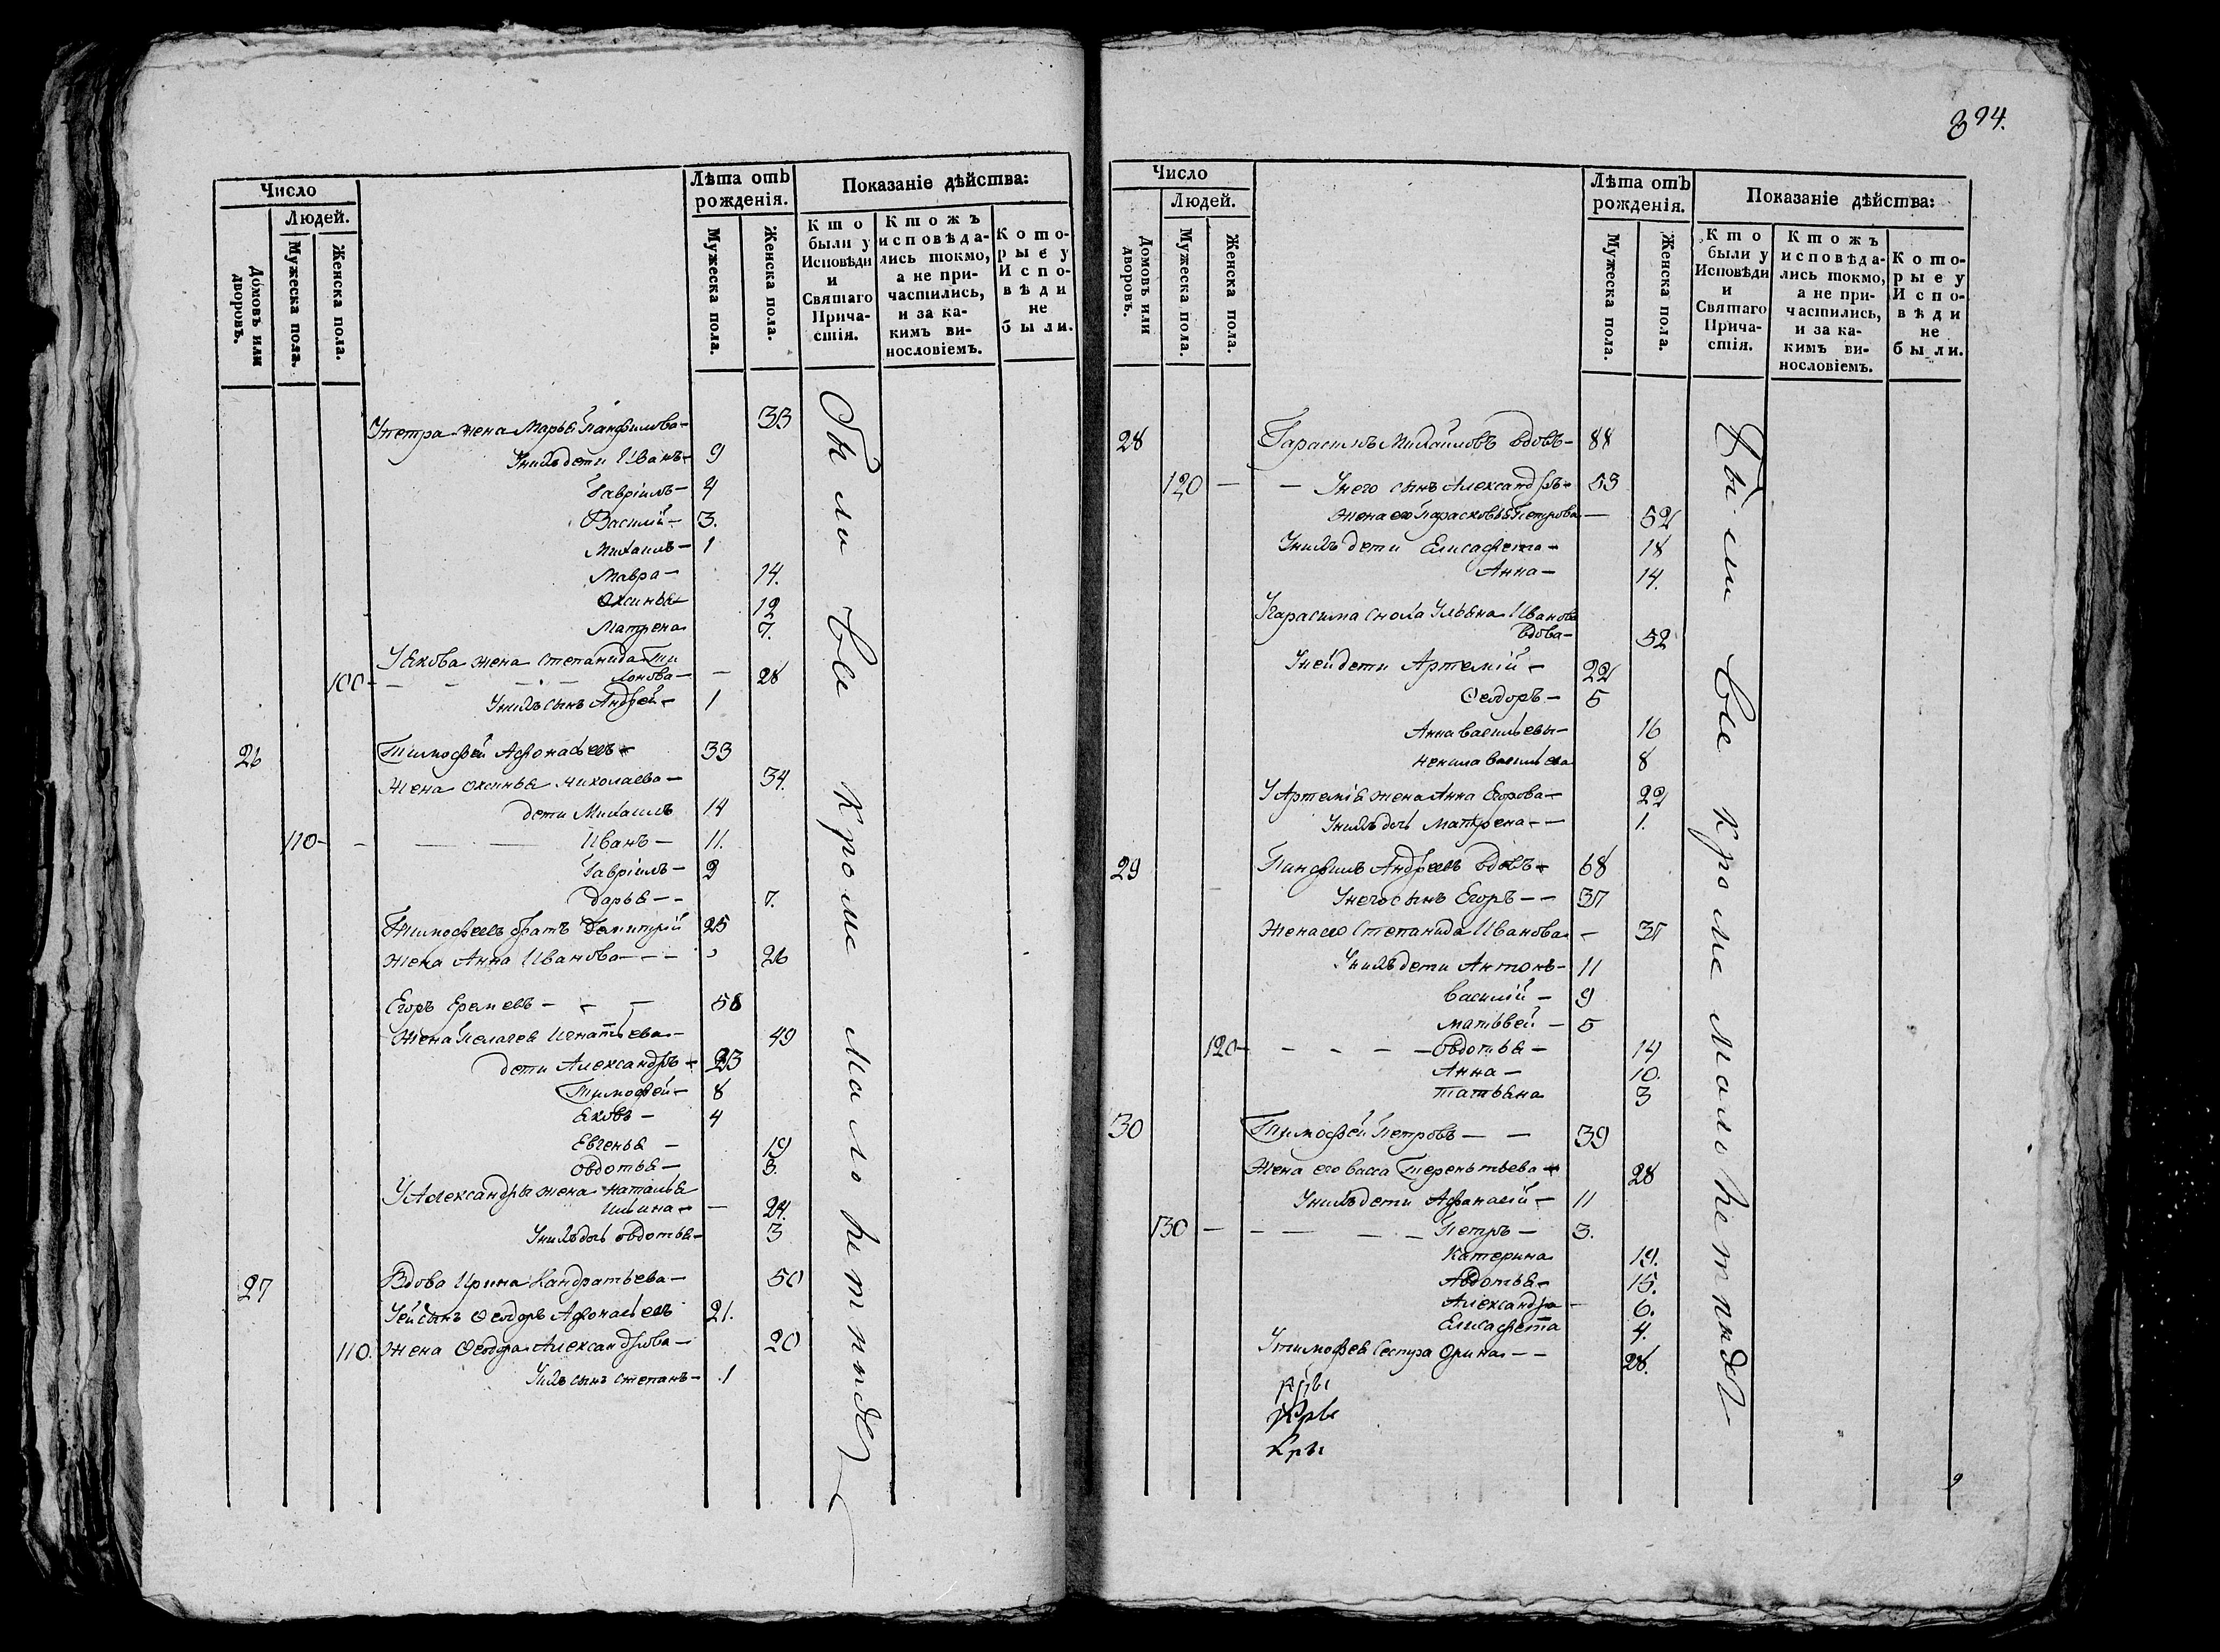 394.
Число
Лѣта отъ рожденія.
Показаніе дѣйства:
Людей.
Домовъ или дворовъ.
Мужеска пола.
Женска пола.
Мужеска пола.
Женска пола.
Кто были у Исповѣди и Святаго Причастія.
Ктожъ исповѣдались токмо, а не причастились, и за какимъ винословіемъ.
Которые у Исповѣди не были.
Упетра жена Марья Панфилова - 33
Унихъ дети Иванъ - 9
Гавріилъ - 4
Василій - 3.
Михаилъ - 1
Мавра - 14.
Оксинья 12
Матрена 7.
Уякова жена Степанида
100 - - - - - - - 28
Унихъ сынъ Андрей - 1
26 Тимофей Афонасьевъ - 33
Жена оксинья николаева - 34.
дети Михаилъ 14
110 - - - - Иванъ - 11.
Гавріилъ - 2
дарья - - 7.
Тимофеевъ братъ Димитрій 25
жена Анна Иванова - - - 26
Егоръ Еремеевъ - - - 58
Жена Пелагея Игнатьева - 49
дети Александръ - 23
Тимофей - 8
Яковъ - 4
Евгенья - 19
Овдотья - 3.
УАлександры жена наталья
- - 24.
Унихъ дочь овдотья - 3
27 Вдова Ирина Кандратьева - 50
Уей сынъ Феодоръ Афонасьевъ 21.
110. Жена Феодора Александрова - 20
Унихъ сынъ степанъ - 1
Были все кроме малолетныхъ
Число
Лѣта отъ рожденія.
Показаніе дѣйства:
Людей.
Домовъ или дворовъ.
Мужеска пола.
Женска пола.
Мужеска пола.
Женска пола.
Кто были у Исповѣди и Святаго Причастія.
Ктожъ исповѣдались токмо, а не причастились, и за какимъ винословіемъ.
Которые у Исповѣди не были.
28 Михаиловъ вдовъ - 88
120 - - Унего сынъ Александръ - 53
жена его Парасковья Петрова - 52
Унихъ дети Елисафета - 18
Анна - 14.
Угарасима сноха Ульяна Иванова
вдова - 52
Уней дети Артемій - 22
Феодоръ - 5
Анна васильевы - 16
ненила васильева 8
УАртемія жена Анна Егорова - 22
Унихъ дочь Матрена - - 1.
29 Панфилъ Андреевъ вдовъ - 68
Унего сынъ Егоръ - - 37
Жена его Степанида Иванова - 37
Унихъ дети Антонъ - 11
василій - 9
матвей - 5
120 - - - - - Овдотья - 14
Анна - 10.
татьяна 3
30 Тимофей Петровъ - - 39
Жена его васса Терентьева - 28
Унихъ дети Афанасій - 11
130 - - - - - Петръ - 3.
Катерина 19.
Авдотья - 15.
Александра - 6.
Елисафета 4.
Утимофея сестра Орина - - 28.
Были все кроме малолетныхъ